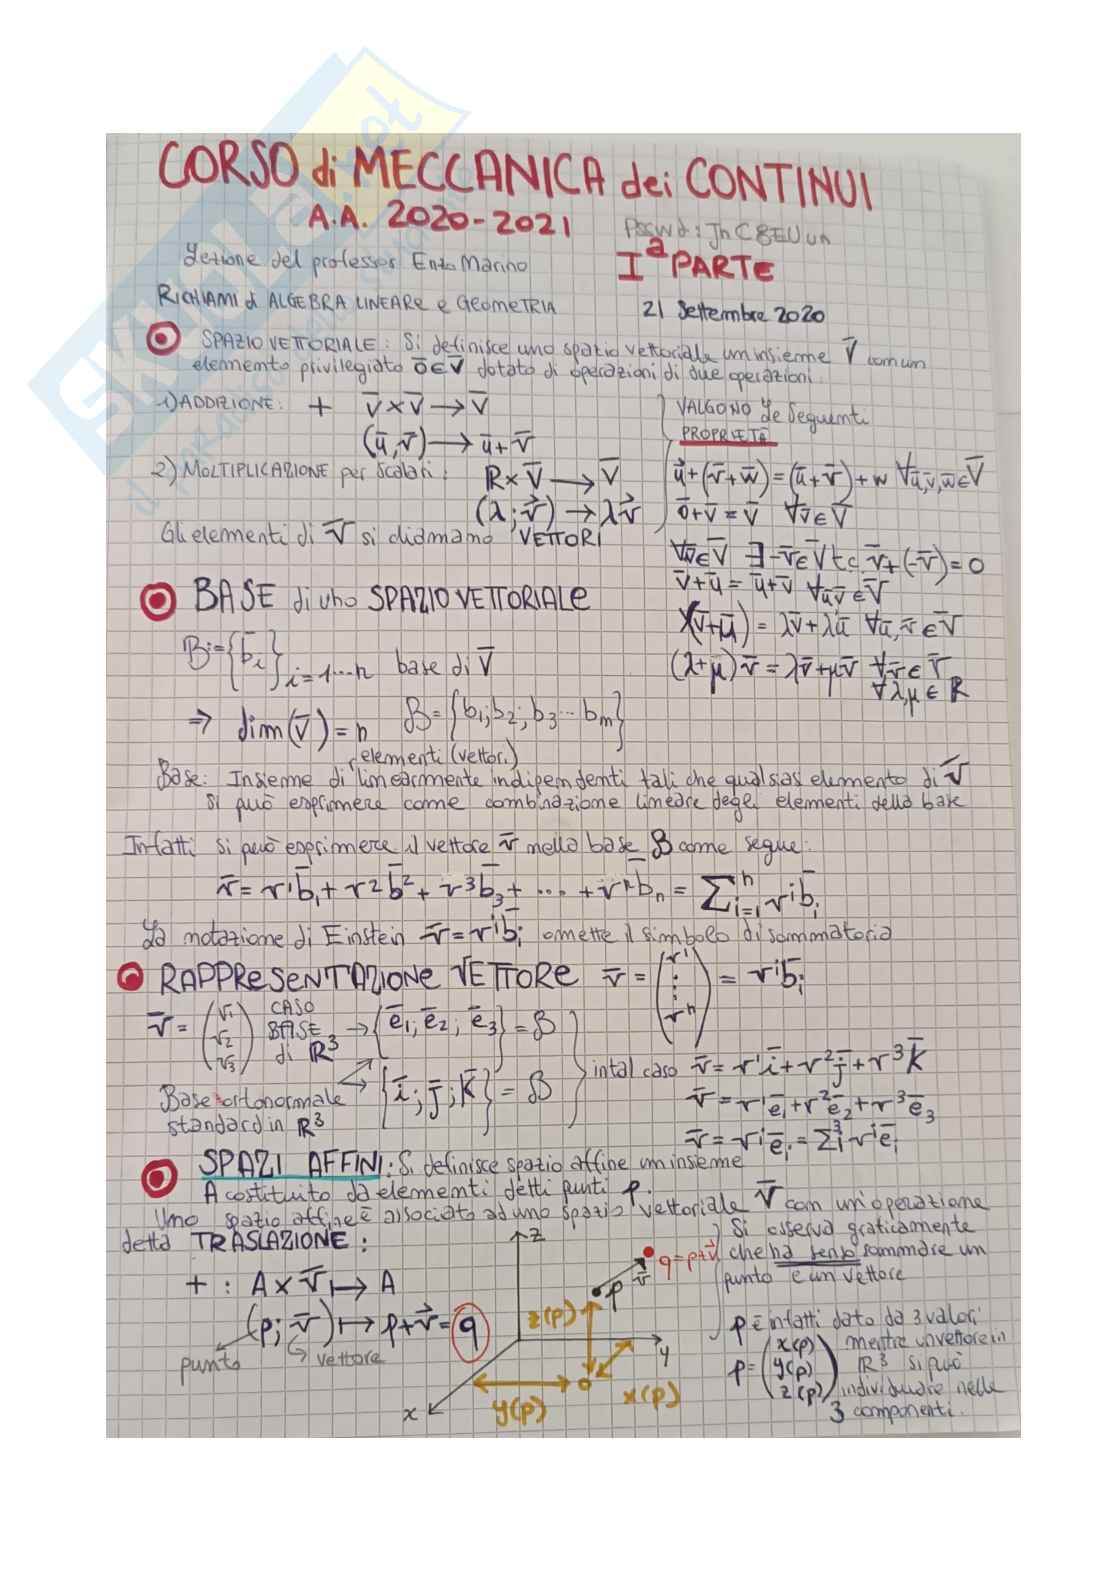 CORSO di MECCANICA dei CONTINUI
A.A. 2020-2021
Lezione del professor Enzo Marino
Iª PARTE
RICHIAMI di ALGEBRA LINEARE e GEOMETRIA
21 Settembre 2020
SPAZIO VETTORIALE: Si definisce uno spazio vettoriale un insieme V̄ con un
elemento privilegiato ō∈V̄ dotato di operazioni di due operazioni.
1) ADDIZIONE: + V̄×V̄ → V̄
(ū,v̄) → ū+v̄
2) MOLTIPLICAZIONE per Scalari: R×V̄ → V̄
(λ;v⃗) → λv⃗
Gli elementi di V̄ si chiamano VETTORI
VALGONO Le Seguenti
PROPRIETÀ
u⃗+(v̄+w̄)=(ū+v̄)+w ∀ū,v̄,w̄∈V̄
ō+v̄=v̄ ∀v̄∈V̄
∀v̄∈V̄ ∃-v̄∈V̄ t.c. v̄+(-v̄)=0
v̄+ū=ū+v̄ ∀ūv̄∈V̄
λ(v̄+ū)=λv̄+λū ∀ū,v̄∈V̄
(λ+μ)v̄=λv̄+μv̄ ∀v̄∈V̄
∀λ,μ∈R
BASE di uno SPAZIO VETTORIALE
B:={b̄i}i=1...n base di V̄
⇒ dim(V̄)=n B={b1;b2;b3...bm}
elementi (vettori)
Base: Insieme di linearmente indipendenti tali che qualsiasi elemento di V̄
Si può esprimere come combinazione lineare degli elementi della base
Infatti si può esprimere il vettore v̄ nella base B come segue:
v̄=v¹b̄₁+v²b̄²+v³b̄₃+...+vⁿb̄n=∑ⁿi=1 vⁱb̄i
La notazione di Einstein v̄=vⁱb̄i omette il simbolo di sommatoria
RAPPRESENTAZIONE VETTORE v̄=(v¹⋮vⁿ)=vⁱb̄i
v̄=(v1 v2 v3) CASO BASE di R³ → {ē1;ē2;ē3}=B
Base ortonormale {ī;j̄;k̄}=B
standard in R³
in tal caso v̄=v¹ī+v²j̄+v³k̄
v̄=v¹ē₁+v²ē₂+v³ē₃
v̄=vⁱēi=∑³i vⁱēi
SPAZI AFFINI: Si definisce spazio affine un insieme
A costituito da elementi detti punti p.
Uno spazio affine è associato ad uno spazio vettoriale V̄ con un'operazione
detta TRASLAZIONE:
+: A×V̄ ↦ A
(p;v̄) ↦ p+v⃗=q
punto vettore
z
q=p+v⃗
p
v̄
z(p)
y
x(p)
y(p)
x
Si osserva graficamente
che ha senso sommare un
punto e un vettore
p è infatti dato da 3 valori
p=(x(p) y(p) z(p)) mentre un vettore in
R³ si può
individuare nelle
3 componenti.